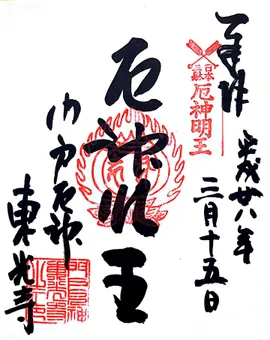 奉拝
厄神明王
平成廿八年
三月十五日
厄神明王
門戸厄神
東光寺